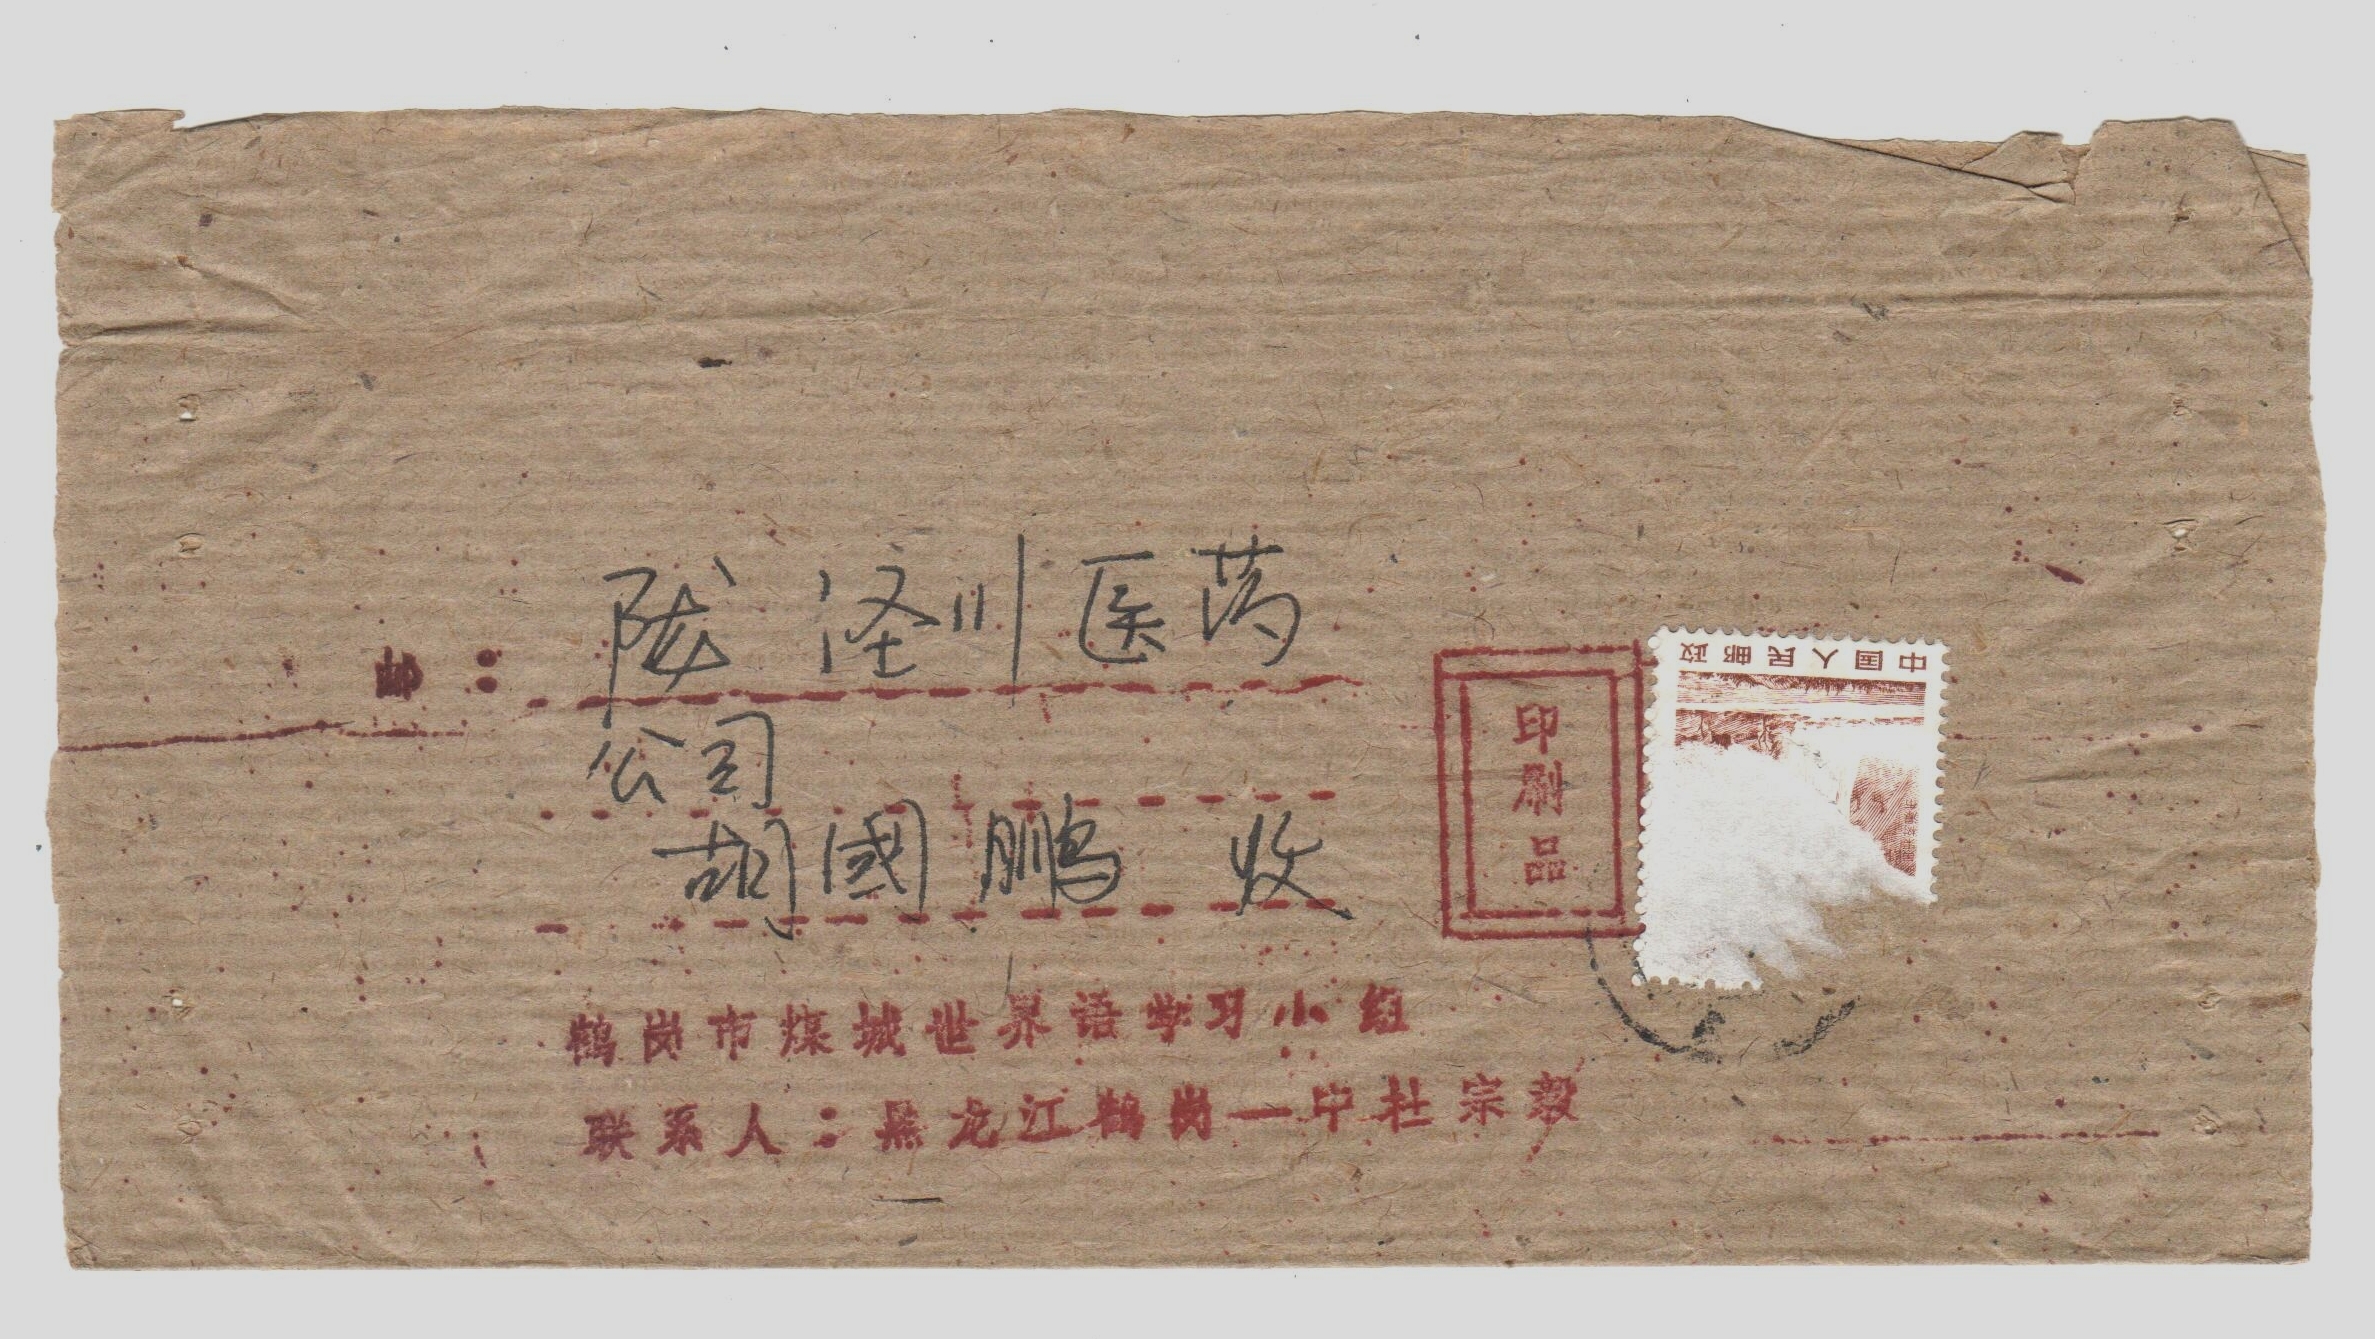 邮：
陇 泾川医药
公司
胡國鹏 收
印刷品
中国人民邮政
鹤岗市煤城世界语学习小组
联系人：黑龙江鹤岗一中杜宗毅